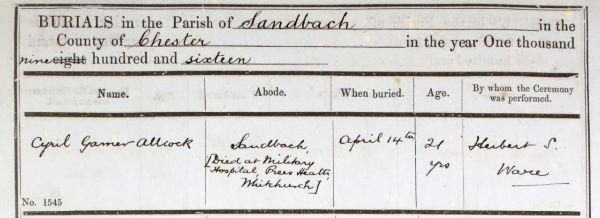 BURIALS in the Parish of Sandbach in the
County of Chester in the year One thousand
nine eight hundred and sixteen
Name. Abode. When buried. Age. By whom the Ceremony was performed.
Cyril Garner Allcock Sandbach, April 14th 21 Herbert S.
[Died at Military yrs Ware
Hospital, Prees Heath,
Whitchurch]
No. 1545